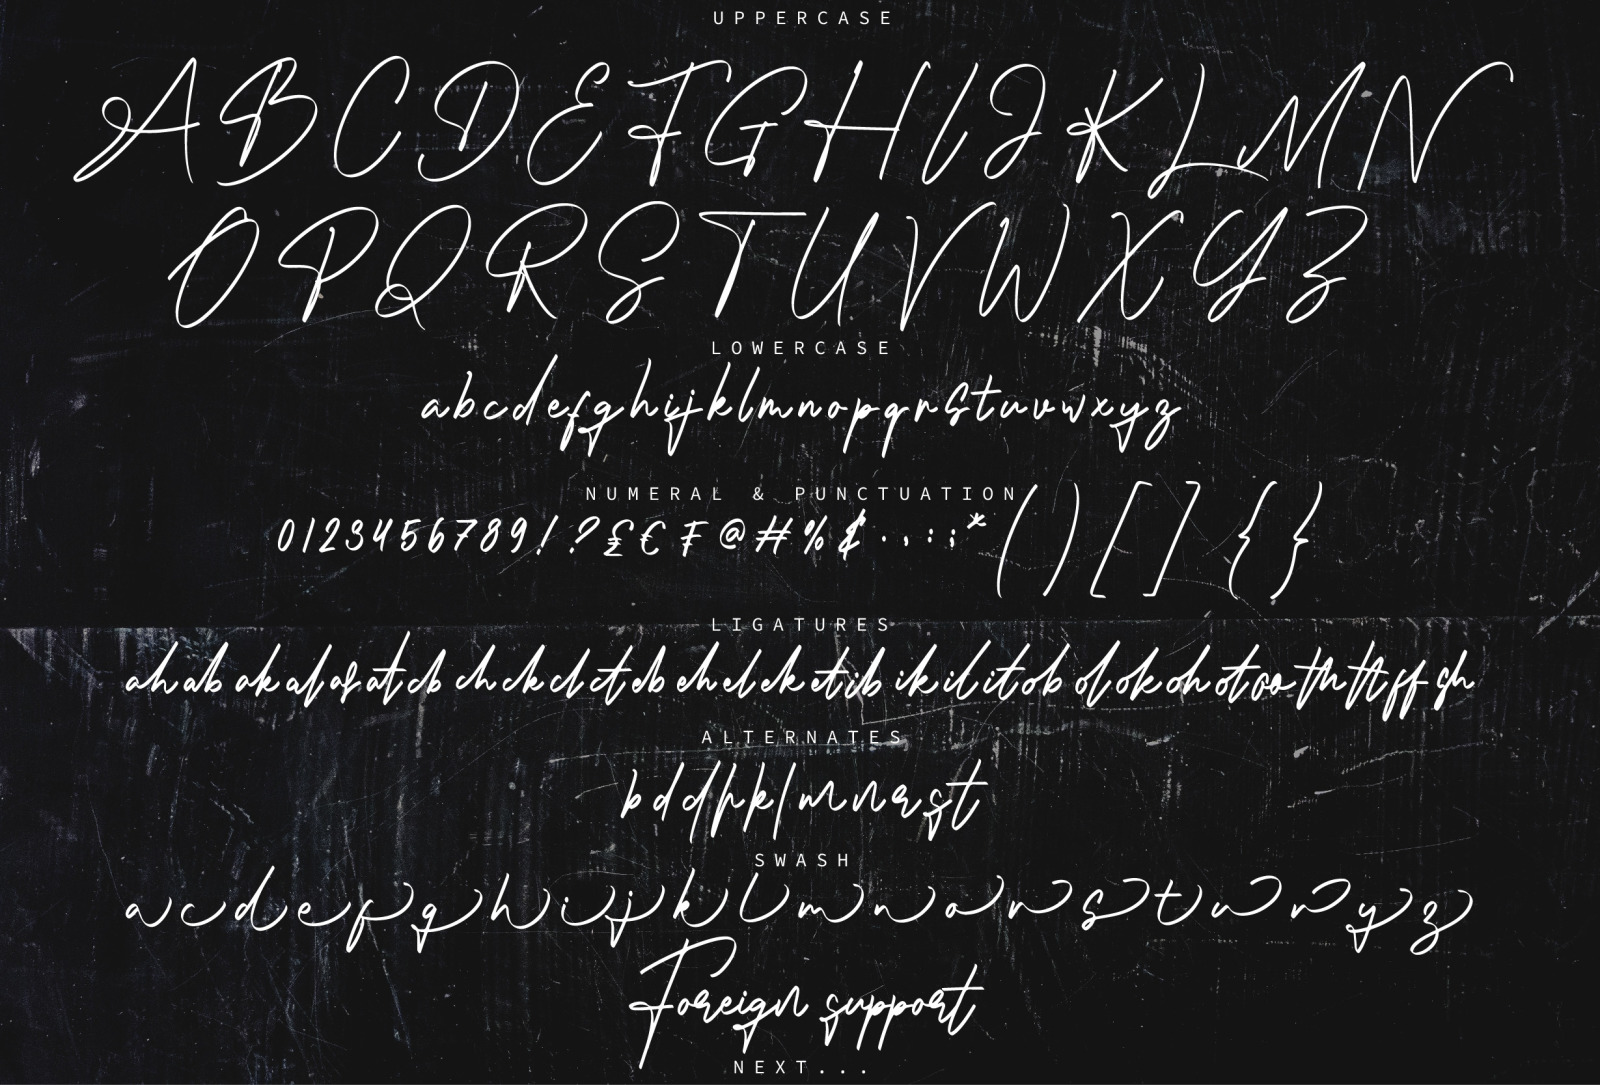 UPPERCASE
ABCDEFGHIJKLMN
OPQRSTUVWXYZ
LOWERCASE
abcdefghijklmnopqrstuvwxyz
NUMERAL & PUNCTUATION
0123456789!?££₣@#%&.,:;*()[]{}
LIGATURES
ah ab ak al af as at cb ch ck cl ct eb eh el ek et ib ik il it ob ol ok oh ot oo th tt ff sh
ALTERNATES
bddhklmnrst
SWASH
acdefghijklmnorstuvyz
Foreign support
NEXT...